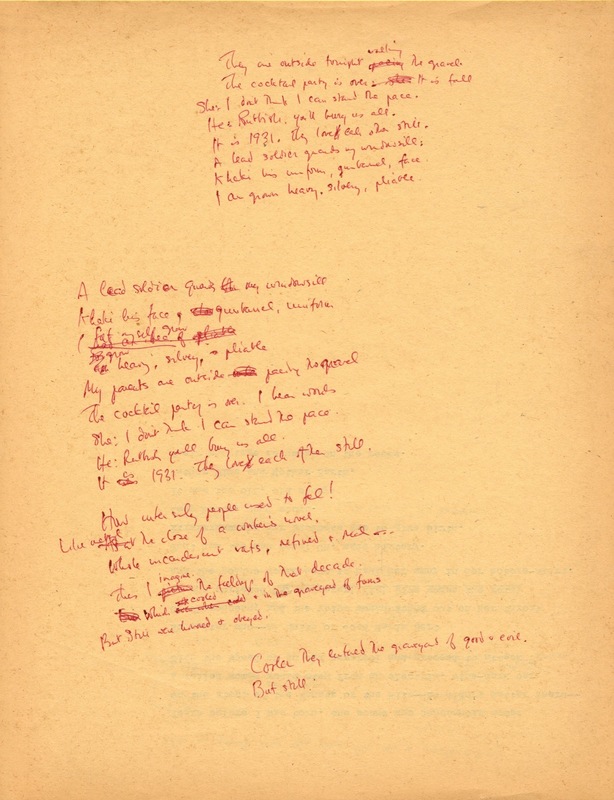 They are outside tonight walking the gravel
The cocktail party is over. It is full
She: I don't think I can stand the pace.
He: Rubbish. you'll bury us all.
It is 1931. They love each other still.
A lead soldier guards my windowsill:
Khaki his uniform, gunbarrel, face.
I am grown heavy, silvery, pliable.
A lead soldier guards my windowsill
Khaki his face, gunbarrel, uniform
I feel myself grow
heavy, silvery, pliable
My parents are outside pacing the gravel
The cocktail party is over. I hear words
She: I don't think I can stand the pace.
He: Rubbish you'll bury us all.
It is 1931. They love each other still
How intensely people used to feel!
Like metal at the close of a
Whole incandescent vats, refined & real
Thus I imagine the feelings of that decade.
Which cooled & in the graveyard of forms
But still were honored & obeyed.
Cooler they entered the graveyard of good & evil.
But still.